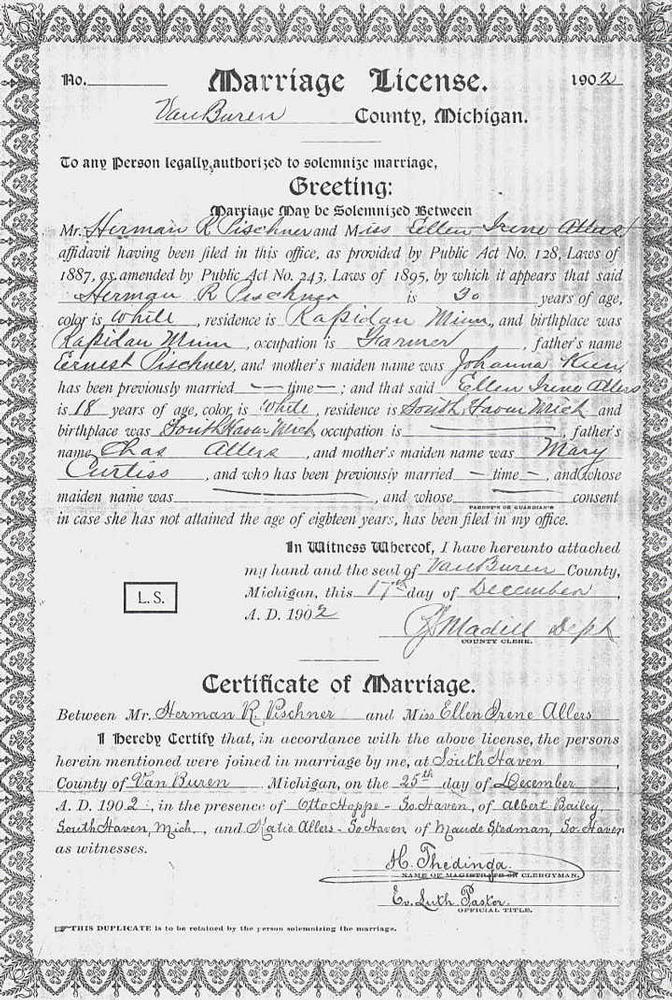 No. Marriage License. 1902
Van Buren County, Michigan.
To any Person legally authorized to solemnize marriage,
Greeting:
Marriage May be Solemnized Between
Mr. Herman R Pischner and Miss Ellen Irene Allers
affidavit having been filed in this office, as provided by Public Act No. 128, Laws of
1887, as amended by Public Act No. 243, Laws of 1895, by which it appears that said
Herman R Pischner is 30 years of age,
color is White, residence is Rapidan Minn, and birthplace was
Rapidan Minn, occupation is Farmer, father's name
Ernest Pischner, and mother's maiden name was Johanna
has been previously married — time —; and that said Ellen Irene Allers
is 18 years of age, color is White, residence is South Haven Mich and
birthplace was South Haven Mich, occupation is —, father's
name Chas Allers, and mother's maiden name was Mary
Curtiss, and who has been previously married — time —, and whose
maiden name was —, and whose — consent
PARENT'S OR GUARDIAN'S
in case she has not attained the age of eighteen years, has been filed in my office.
In Witness Whereof, I have hereunto attached
my hand and the seal of Van Buren County,
L. S.
Michigan, this 17th day of December,
A. D. 1902
Madill Dept
COUNTY CLERK.
Certificate of Marriage.
Between Mr. Herman R. Pischner and Miss Ellen Irene Allers
I Hereby Certify that, in accordance with the above license, the persons
herein mentioned were joined in marriage by me, at South Haven,
County of Van Buren, Michigan, on the 25th day of December,
A. D. 1902, in the presence of Otto Hoppe - So. Haven, of Albert Bailey,
South Haven, Mich., and Katie Allers - So Haven of Maude Stedman, So. Haven
as witnesses.
H. Thedinga.
NAME OF MAGISTRATE OR CLERGYMAN.
Ev. Luth. Pastor.
OFFICIAL TITLE.
☞THIS DUPLICATE is to be retained by the person solemnizing the marriage.